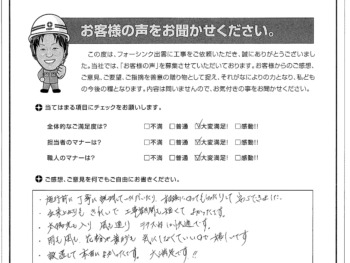 お客様の声をお聞かせください。
この度は、フォーシンク出雲に工事をご依頼いただき、誠にありがとうございまし
た。当社では、「お客様の声」を募集させていただいております。お客様からのご感想、
ご意見、ご要望、ご指摘を普段の贈り物として捉え、それがなによりの力となり、私ども
の今後の糧となります。内容は問いませんので、お気付きの事をお聞かせください。
当てはまる項目にチェックをお願いします。
全体的なご満足度は? □不満 □普通 ☑大変満足! □感動!!
担当者のマナーは? □不満 □普通 ☑大変満足! □感動!!
職人のマナーは? □不満 □普通 ☑大変満足! □感動!!
ご感想、ご意見を何でもご自由にお書きください。
・施行前に丁寧に説明していただいたり、
・出来上がりもきれいで工事期間も短くてよかったです。
・太陽光も入り 風も通り 快適です。
・雨も風も花粉や黄砂も気にしなくていいので嬉しいです
・設置して本当によかったです。大満足です!!